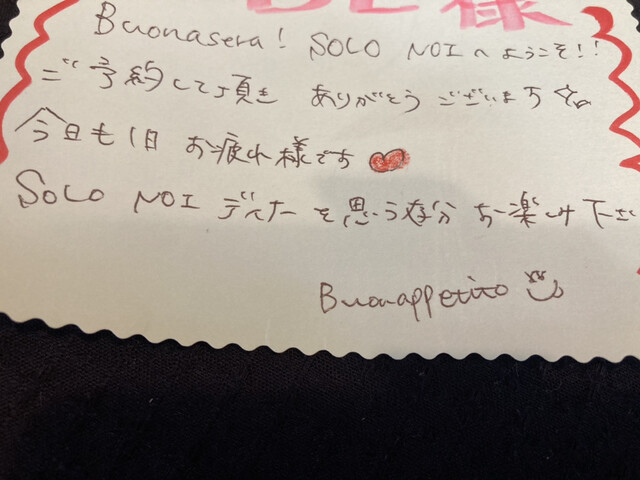 様
Buonasera! SOLO NOIへようこそ!!
ご予約して頂き ありがとうございます
今日も1日 お疲れ様です
SOLO NOI ディナーを思う存分お楽しみ下さ
Buonappetito